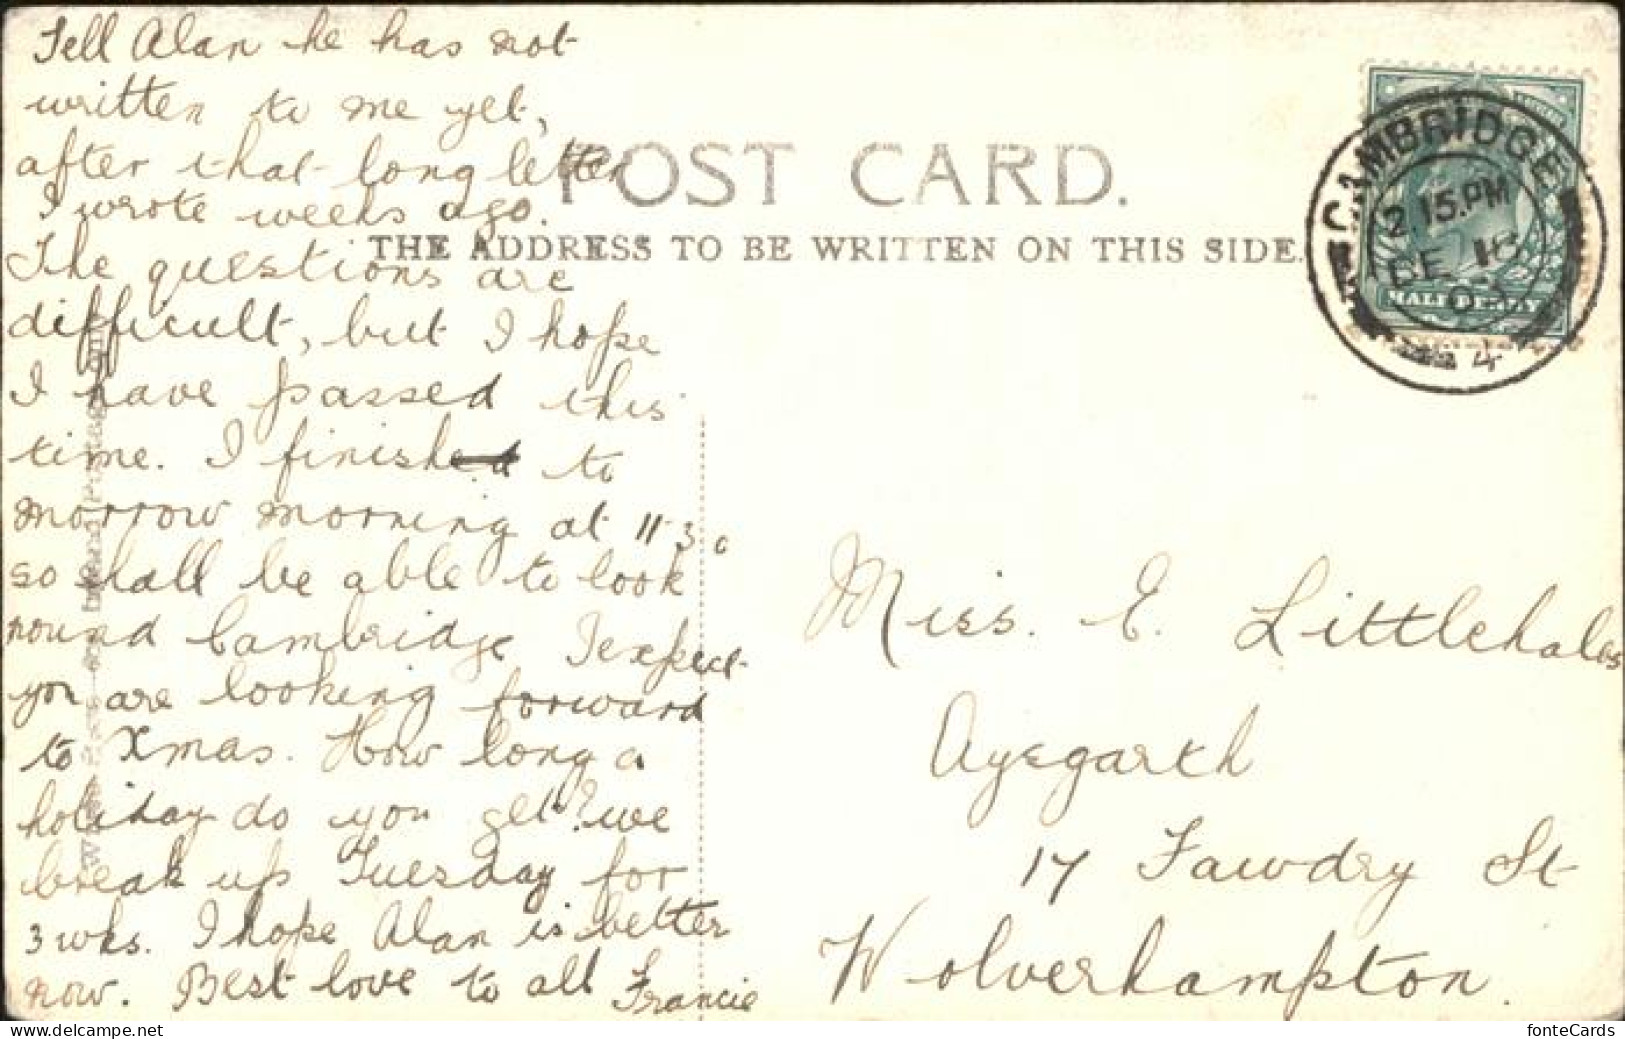 Tell Alan he has not
written to me yet,
after that long letter
I wrote weeks ago.
The questions are
difficult, but I hope
I have passed this
time. I finish to
morrow morning at 11-30
so shall be able to look
round Cambridge I expect
you are looking forward
to Xmas. How long a
holiday do you get? we
break up Tuesday for
3 wks. I hope Alan is better
now. Best love to all Francie
POST CARD.
THE ADDRESS TO BE WRITTEN ON THIS SIDE.
CAMBRIDGE
2.15.PM
DE 18
4
HALF PENNY
Miss. E. Littlehales
Aysgarth
17 Fawdry St
Wolverhampton.
www.delcampe.net
fonteCards